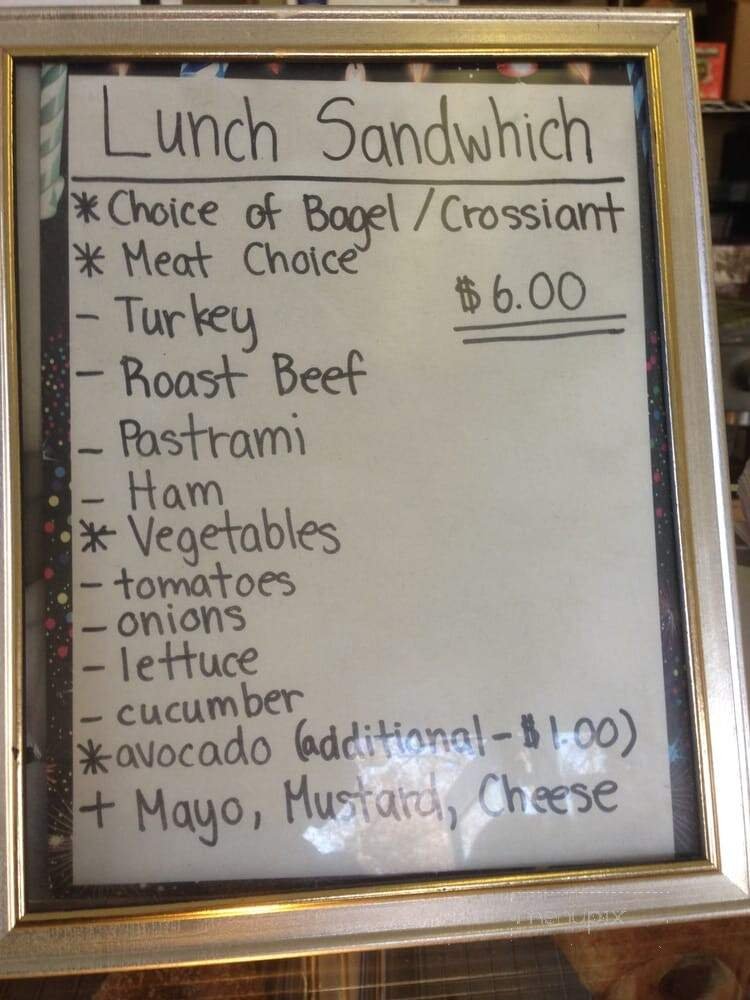 Lunch Sandwhich
* Choice of Bagel / Crossiant
* Meat Choice
$6.00
- Turkey
- Roast Beef
- Pastrami
- Ham
* Vegetables
- tomatoes
- onions
- lettuce
- cucumber
* avocado (additional - $1.00)
+ Mayo, Mustard, Cheese
menupix